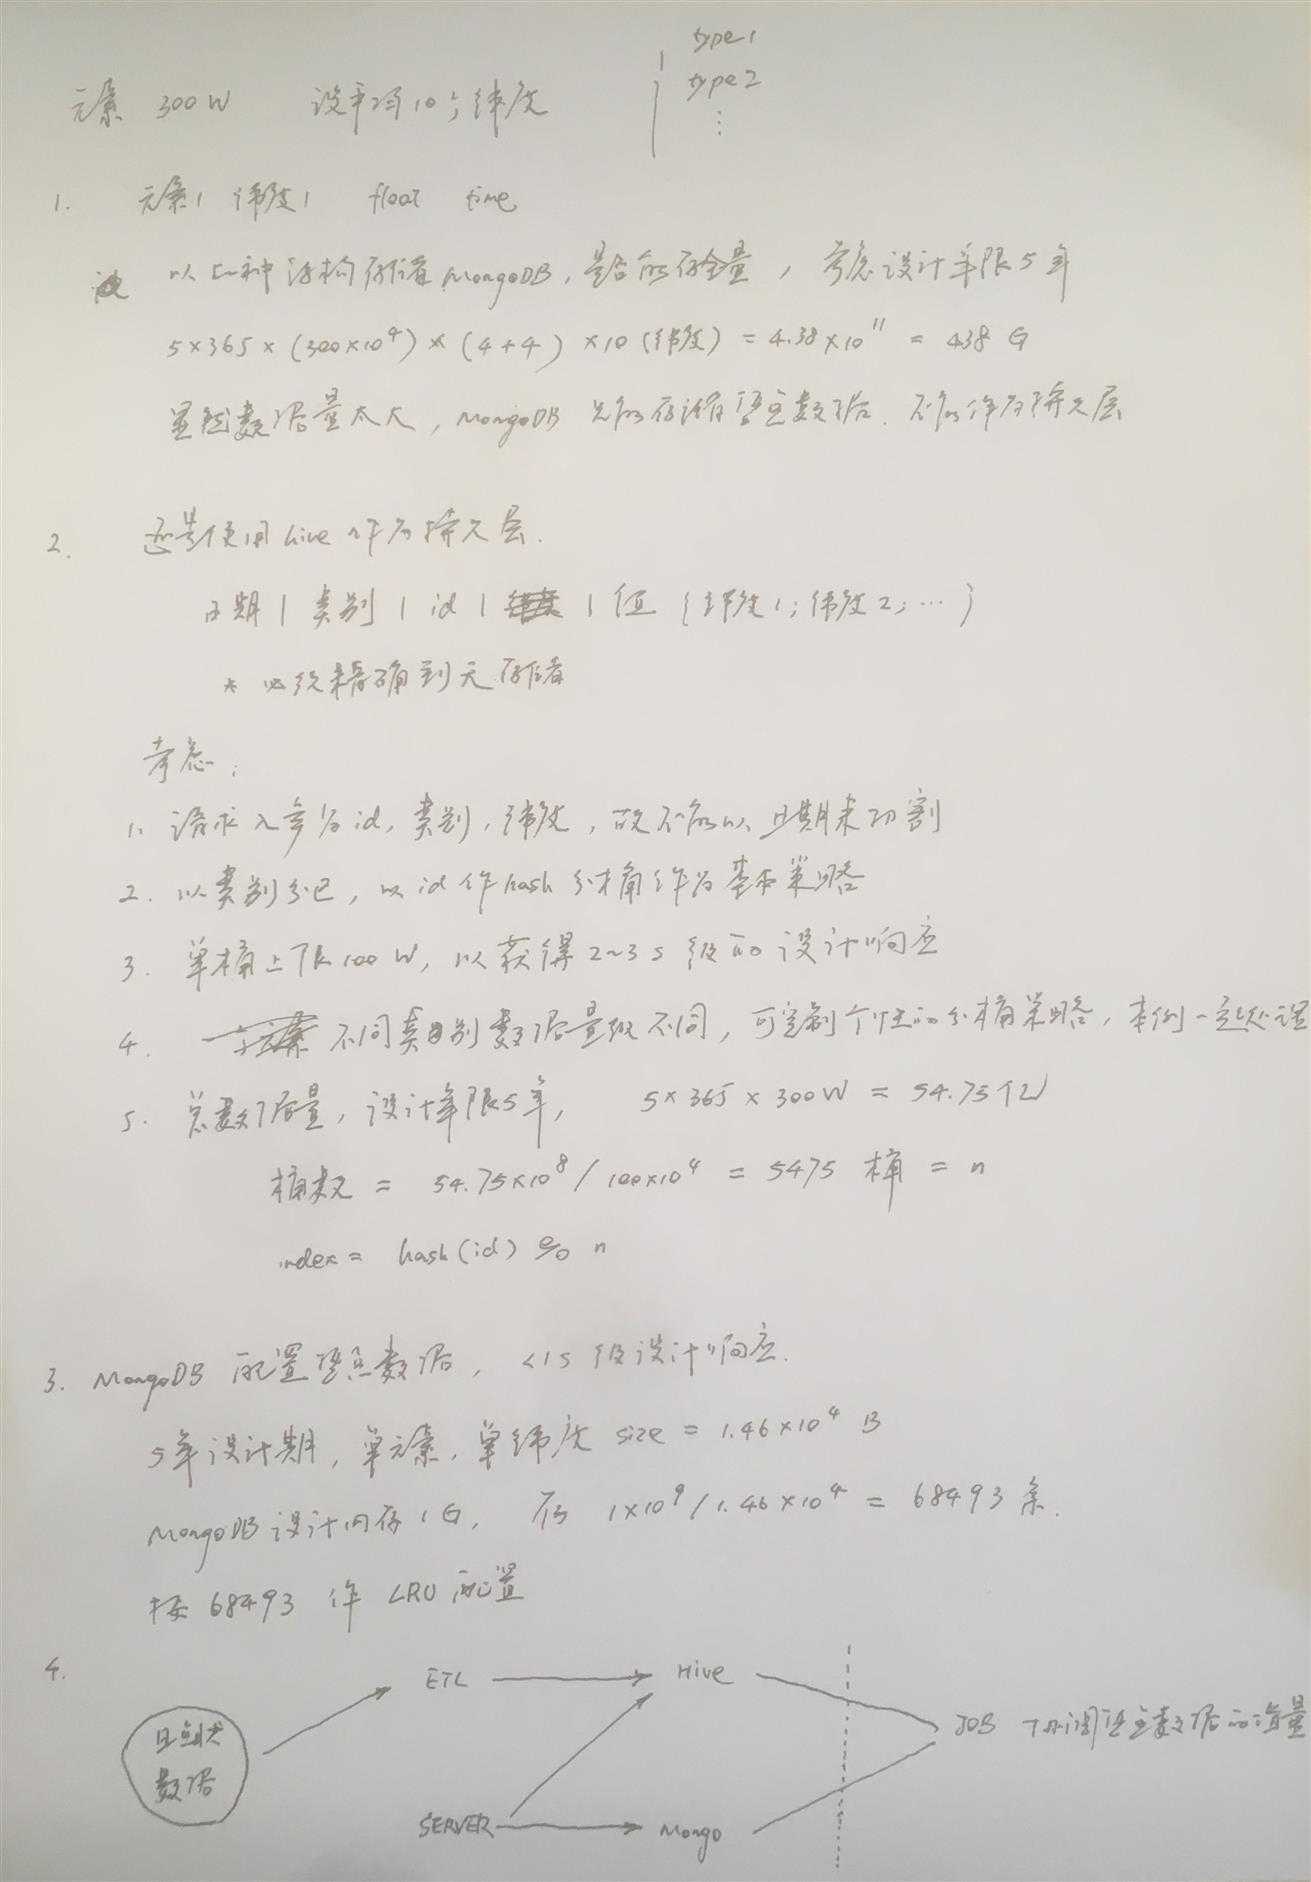 type1
元素 300W 设平均10个纬度 type2
⋮
1. 元素1 纬度1 float time
以上种结构存储MongoDB,是否能存全量,考虑设计年限5年
5×365×(300×10⁴)×(4+4)×10(纬度)=4.38×10¹¹=438G
显然数据量太大,MongoDB只能存储热点数据.不能作为持久层
2. 还是使用hive作为持久层.
日期|类别|id||值{纬度1;纬度2;…}
* 必须精确到天存储
考虑:
1. 请求入参为id,类别,纬度,故不能以日期来切割
2. 以类别分区,以id作hash分桶作为基本策略
3. 单桶上限100W,以获得2~3s级的设计响应
4. 不同类别数据量级不同,可定制个性的分桶策略,本例一致处理
5. 总数据量,设计年限5年, 5×365×300W=54.75亿
桶数=54.75×10⁸/100×10⁴=5475桶=n
index=hash(id)%n
3. MongoDB 配置热点数据,<1s级设计响应.
5年设计期,单元素,单纬度 size=1.46×10⁴B
MongoDB设计内存1G, 存 1×10⁹/1.46×10⁴=68493条.
按68493作LRU配置
4. ETL Hive
数据 JOB 数据的
SERVER Mongo